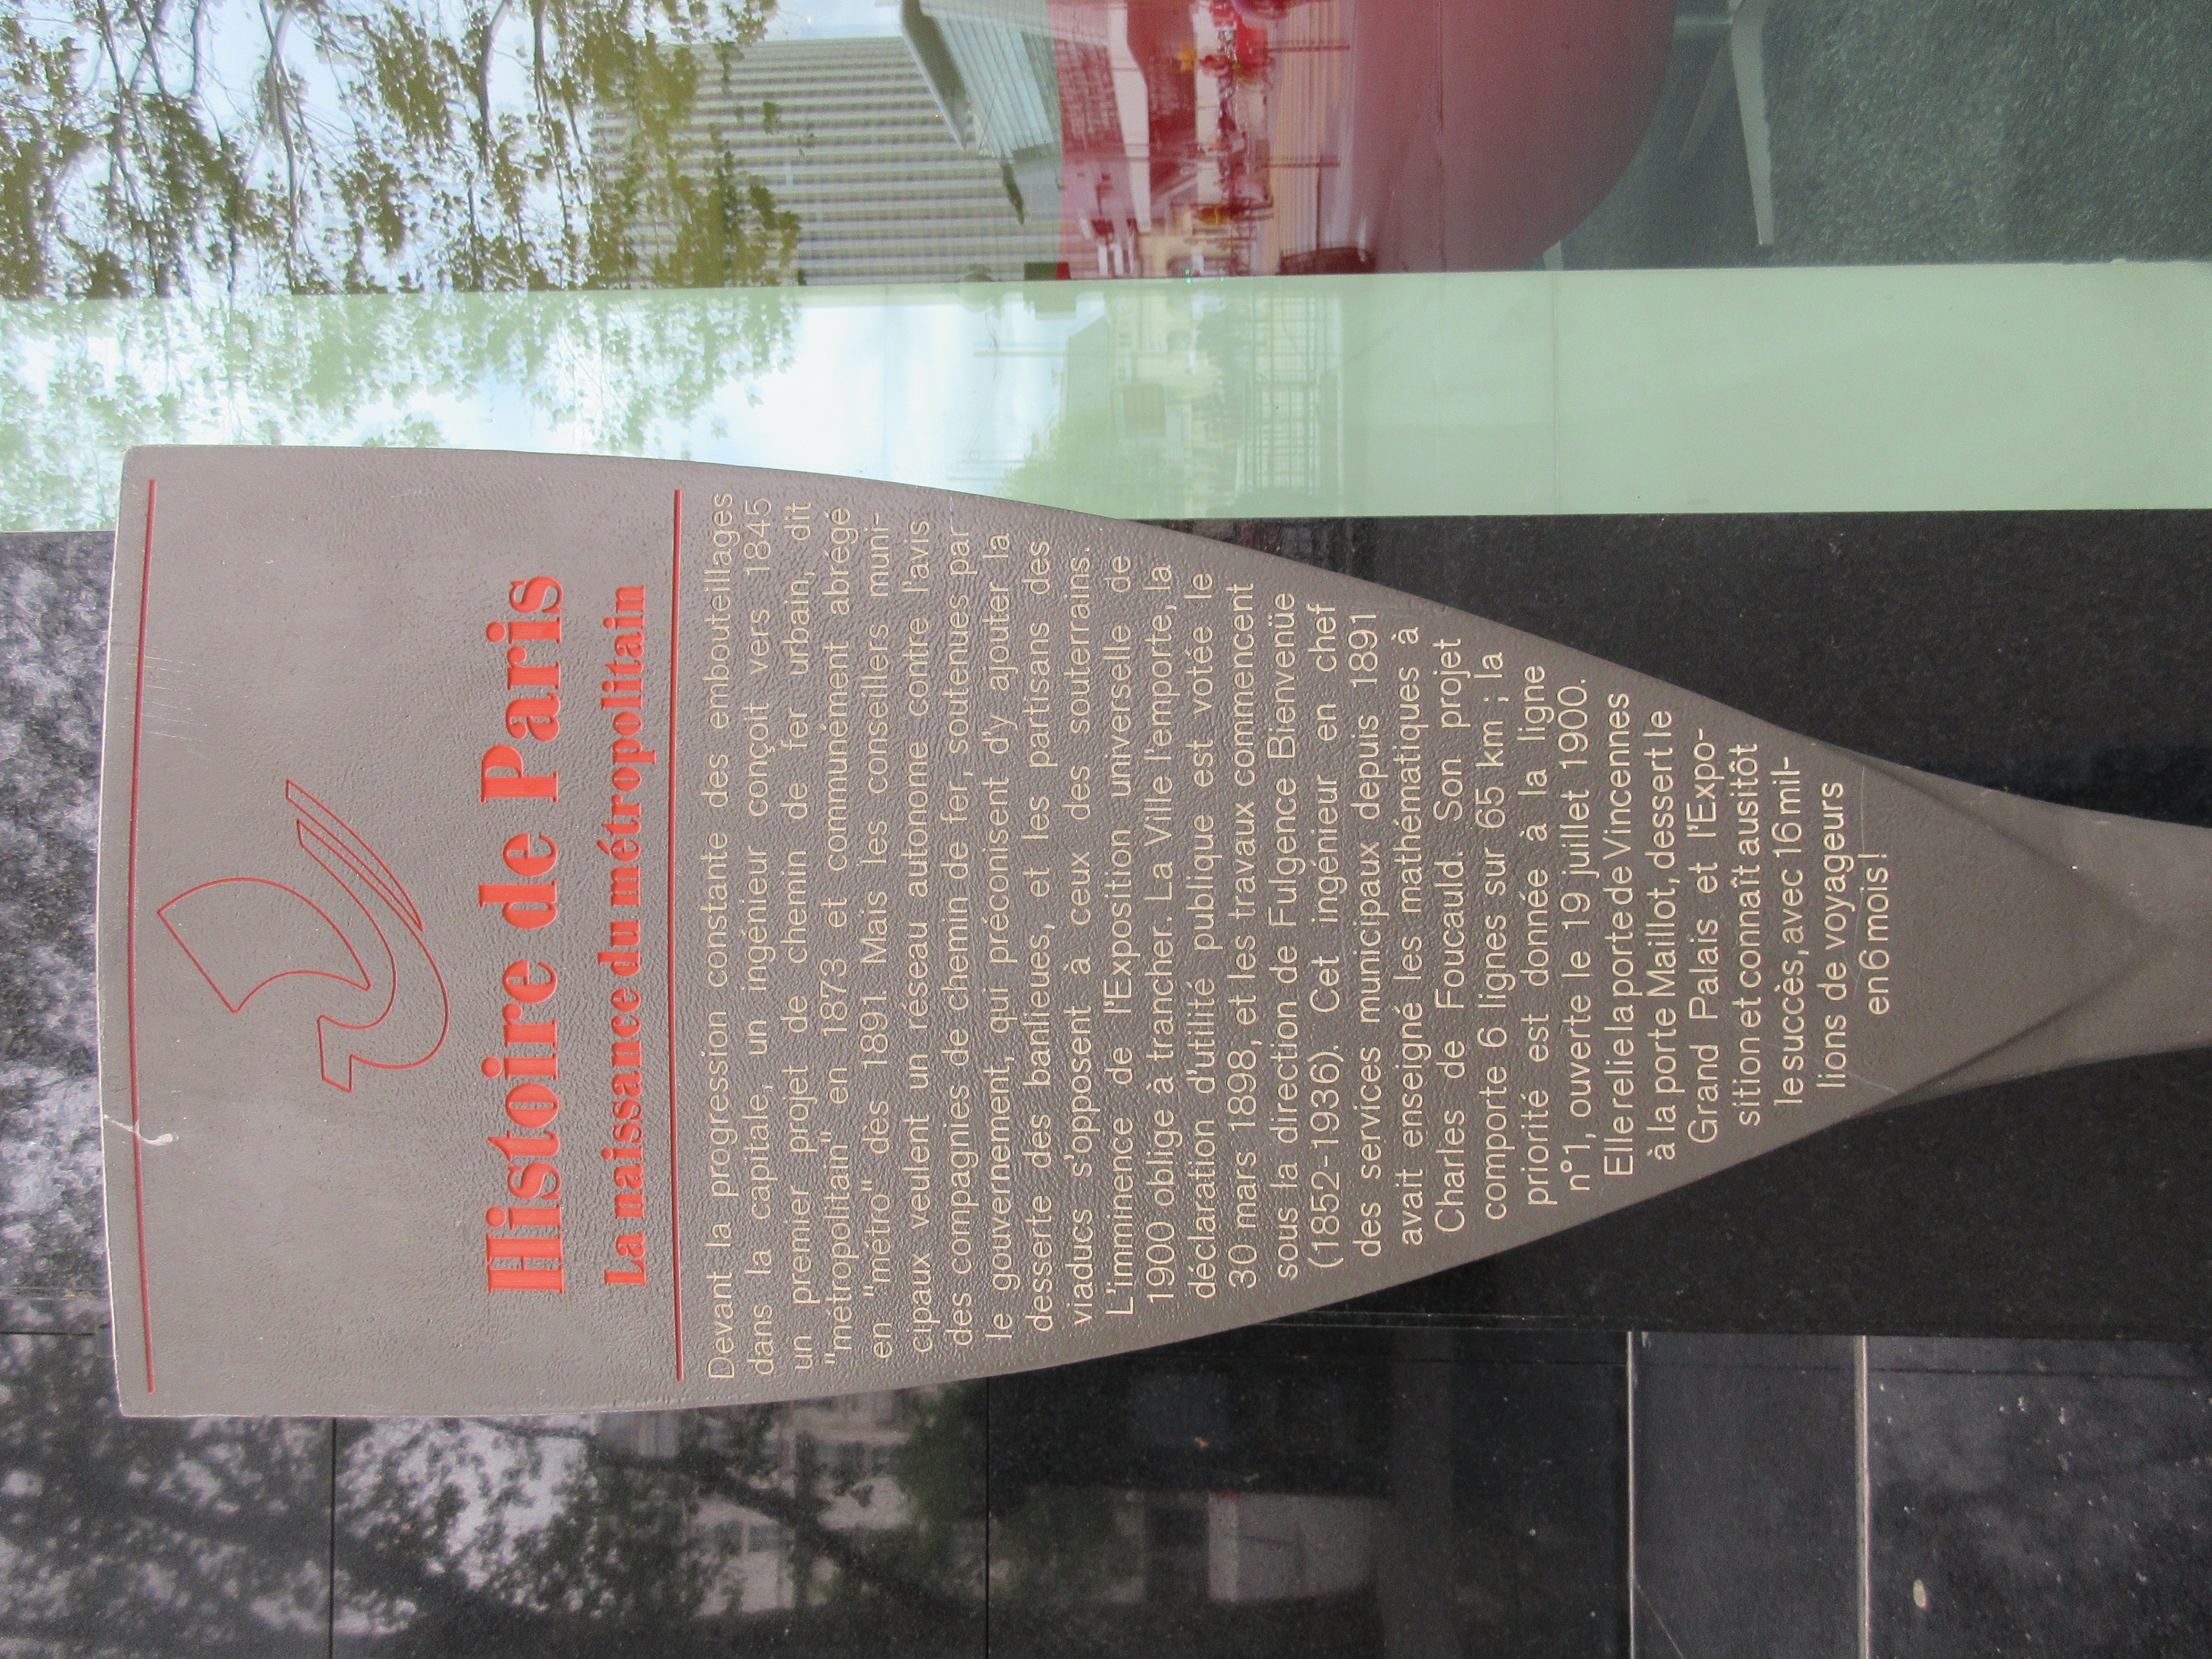 Histoire de Paris
La naissance du métropolitain
Devant la progression constante des embouteillages
dans la capitale, un ingénieur conçoit vers 1845
un premier projet de chemin de fer urbain, dit
"métropolitain" en 1873 et communément abrégé
en "métro" des 1891. Mais les conseillers muni-
cipaux veulent un réseau autonome contre l'avis
des compagnies de chemin de fer, soutenues par
le gouvernement, qui préconisent d'y ajouter la
desserte des banlieues, et les partisans des
viaducs s'opposent à ceux des souterrains.
L'imminence de l'Exposition universelle de
1900 oblige à trancher. La Ville l'emporte, la
déclaration d'utilité publique est votée le
30 mars 1898, et les travaux commencent
sous la direction de Fulgence Bienvenüe
(1852-1936). Cet ingénieur en chef
des services municipaux depuis 1891
avait enseigné les mathématiques à
Charles de Foucauld. Son projet
comporte 6 lignes sur 65 km ; la
priorité est donnée à la ligne
n°1, ouverte le 19 juillet 1900.
Elle relie la porte de Vincennes
à la porte Maillot, dessert le
Grand Palais et l'Expo-
sition et connaît ausitôt
le succès, avec 16 mil-
lions de voyageurs
en 6 mois !